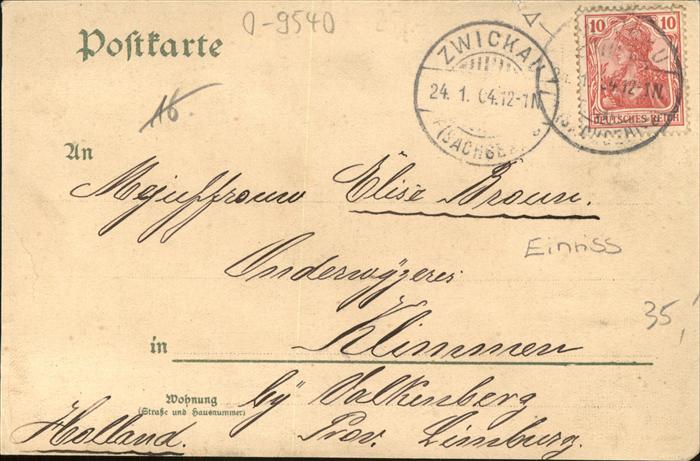 0-9540
Postkarte
10 10
DEUTSCHES REICH
ZWICKAU
24. 1. 04. 12-1N.
(SACHSEN)
16.
An
Mejuffrouw Elise Broun.
Einriss
Onderwijzeres
35,
in Klimmen
Wohnung
(Straße und Hausnummer)
bij Valkenberg
Holland. Prov. Limburg.